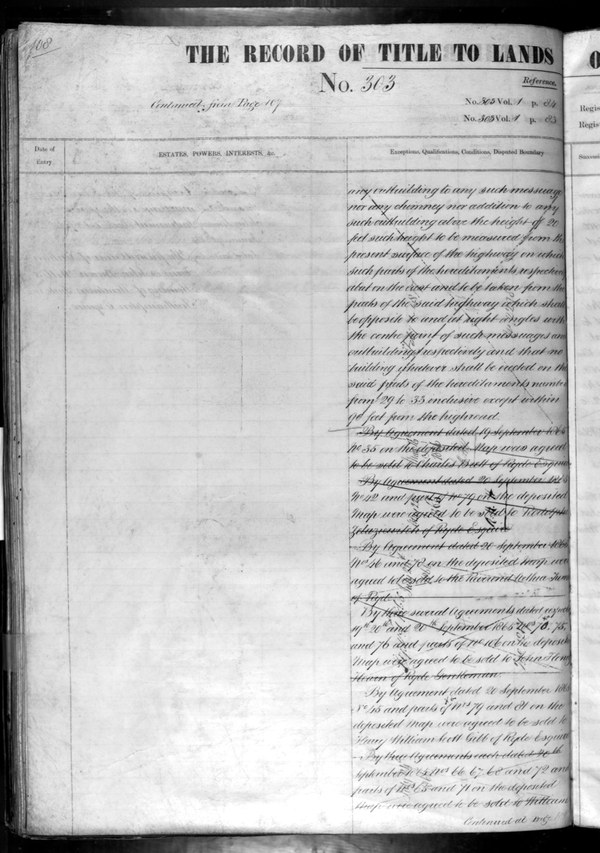 108
THE RECORD OF TITLE TO LANDS
No. 303
Reference.
Continued from Page 107
No. 303 Vol. 1 p. 84
No. 303 Vol. 1 p. 83
Date of Entry.
ESTATES, POWERS, INTERESTS, &c.
Exceptions, Qualifications, Conditions, Disputed Boundary
any outbuilding to any such messuage
nor any chimney nor addition to any
such outbuilding above the height of 20
feet such height to be measured from the
present surface of the highway on which
such parts of the hereditaments respectively
abut on the east and to be taken from the
parts of the said highway which shall
be opposite to and at right angles with
the centre point of such messuages and
outbuildings respectively and that no
building whatever shall be erected on the
said parts of the hereditaments number
from 29 to 35 inclusive except within
90 feet from the highroad.
By Agreement dated 19 September 1865
No 35 on the deposited Map was agreed
to be sold to Charles Butt of Ryde Esquire
By Agreement dated 20 September 1865
No 42 and part of No 79 on the deposited
Map were agreed to be sold to
of Ryde Esquire
By Agreement dated 20 September 1865
Nos 46 and 78 on the deposited Map were
agreed to be sold to the Reverend
of Ryde
By three several Agreements dated
19th 20th and 20th September 1865 Nos 75
and 76 and parts of No 106 on the deposited
Map were agreed to be sold to John Henry
of Ryde Gentleman
By Agreement dated 20 September 1865
No 45 and parts of Nos 79 and 81 on the
deposited Map were agreed to be sold to
Harry William Scott Gibb of Ryde Esquire
By three Agreements each dated 20th
September 1865 Nos 66 67 68 and 72 and
parts of Nos 65 and 71 on the deposited
Map were agreed to be sold to William
Continued at page